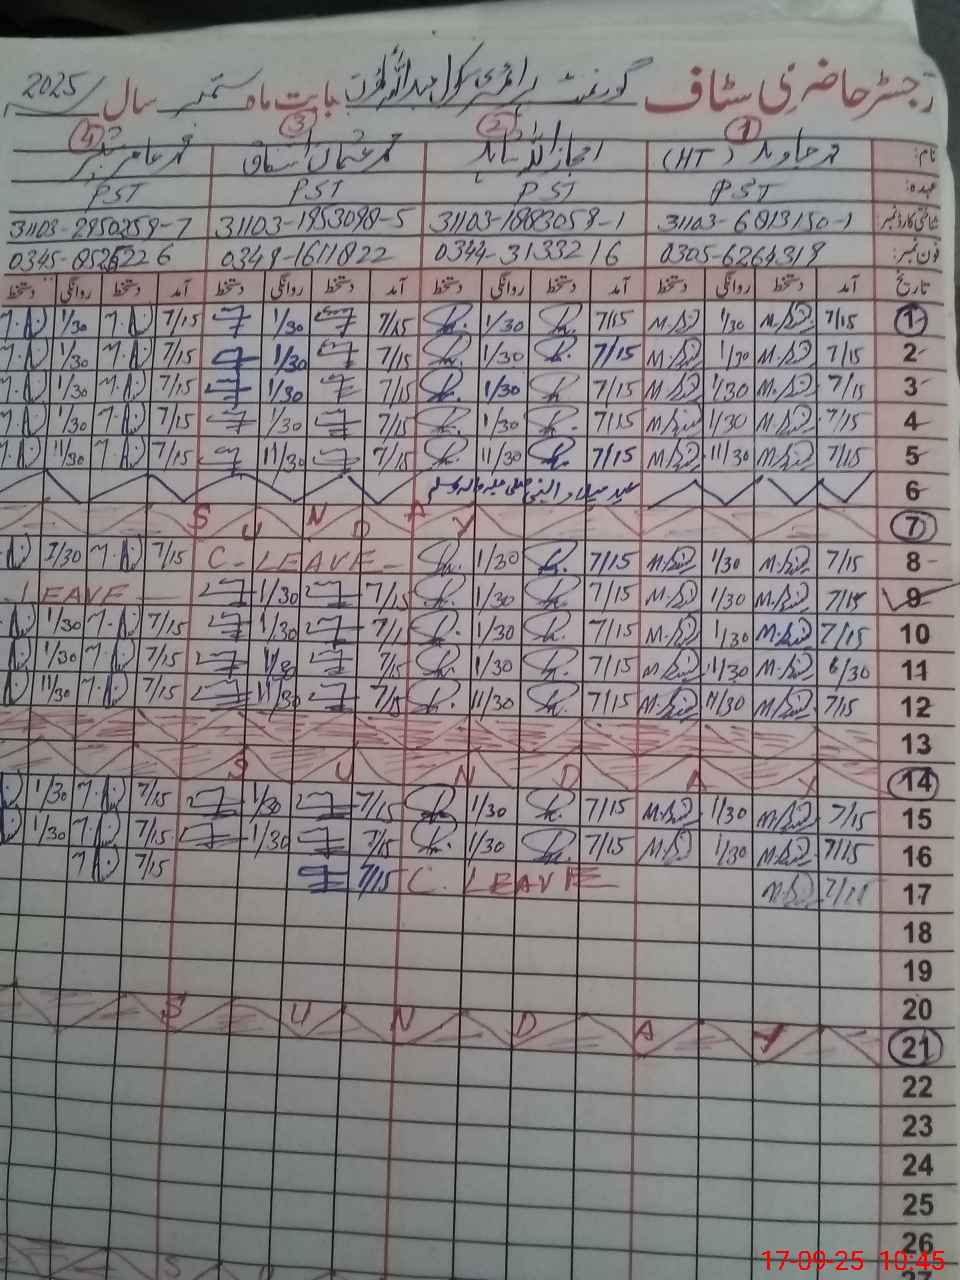 رجسٹر حاضری سٹاف گورنمنٹ پرائمری سکول عبداللہ بابت ماہ ستمبر سال 2025
1 2 3 4
نام: محمد جاوید (HT) اعجاز اللہ محمد عثمان اسحاق محمد عامر
عہدہ: PST PST PST PST
شناختی کارڈ نمبر 31103-6813150-1 31103-1883058-1 31103-1953098-5 31103-2950259-7
فون نمبر: 0305-6264318 0344-3133216 0349-1611822 0345-8526226
تاریخ آمد دستخط روانگی دستخط آمد دستخط روانگی دستخط آمد دستخط روانگی دستخط آمد دستخط روانگی دستخط
1 7/15 1/30 7/15 1/30 7/15 1/30 7/15 1/30
2 7/15 1/30 7/15 1/30 7/15 1/30 7/15 1/30
3 7/15 1/30 7/15 1/30 7/15 1/30 7/15 1/30
4 7/15 1/30 7/15 1/30 7/15 1/30 7/15 1/30
5 7/15 11/30 7/15 11/30 7/15 11/30 7/15 11/30
6 عید میلاد النبی صلی اللہ علیہ وآلہ وسلم
7 SUNDAY
8 7/15 1/30 7/15 1/30 C-LEAVE 7/15 1/30
9 7/15 1/30 7/15 1/30 7/15 1/30 LEAVE
10 7/15 1/30 7/15 1/30 7/1 1/30 7/15 1/30
11 6/30 11/30 7/15 1/30 7/15 1/30 7/15 1/30
12 7/15 11/30 7/15 11/30 7/15 11/30 7/15 11/30
13
14 SUNDAY
15 7/15 1/30 7/15 1/30 7/15 1/30 7/15 1/30
16 7/15 1/30 7/15 1/30 7/15 1/30 7/15 1/30
17 7/15 C. LEAVE 7/15 7/15
18
19
20
21 SUNDAY
22
23
24
25
26
27
17-09-25 10:45